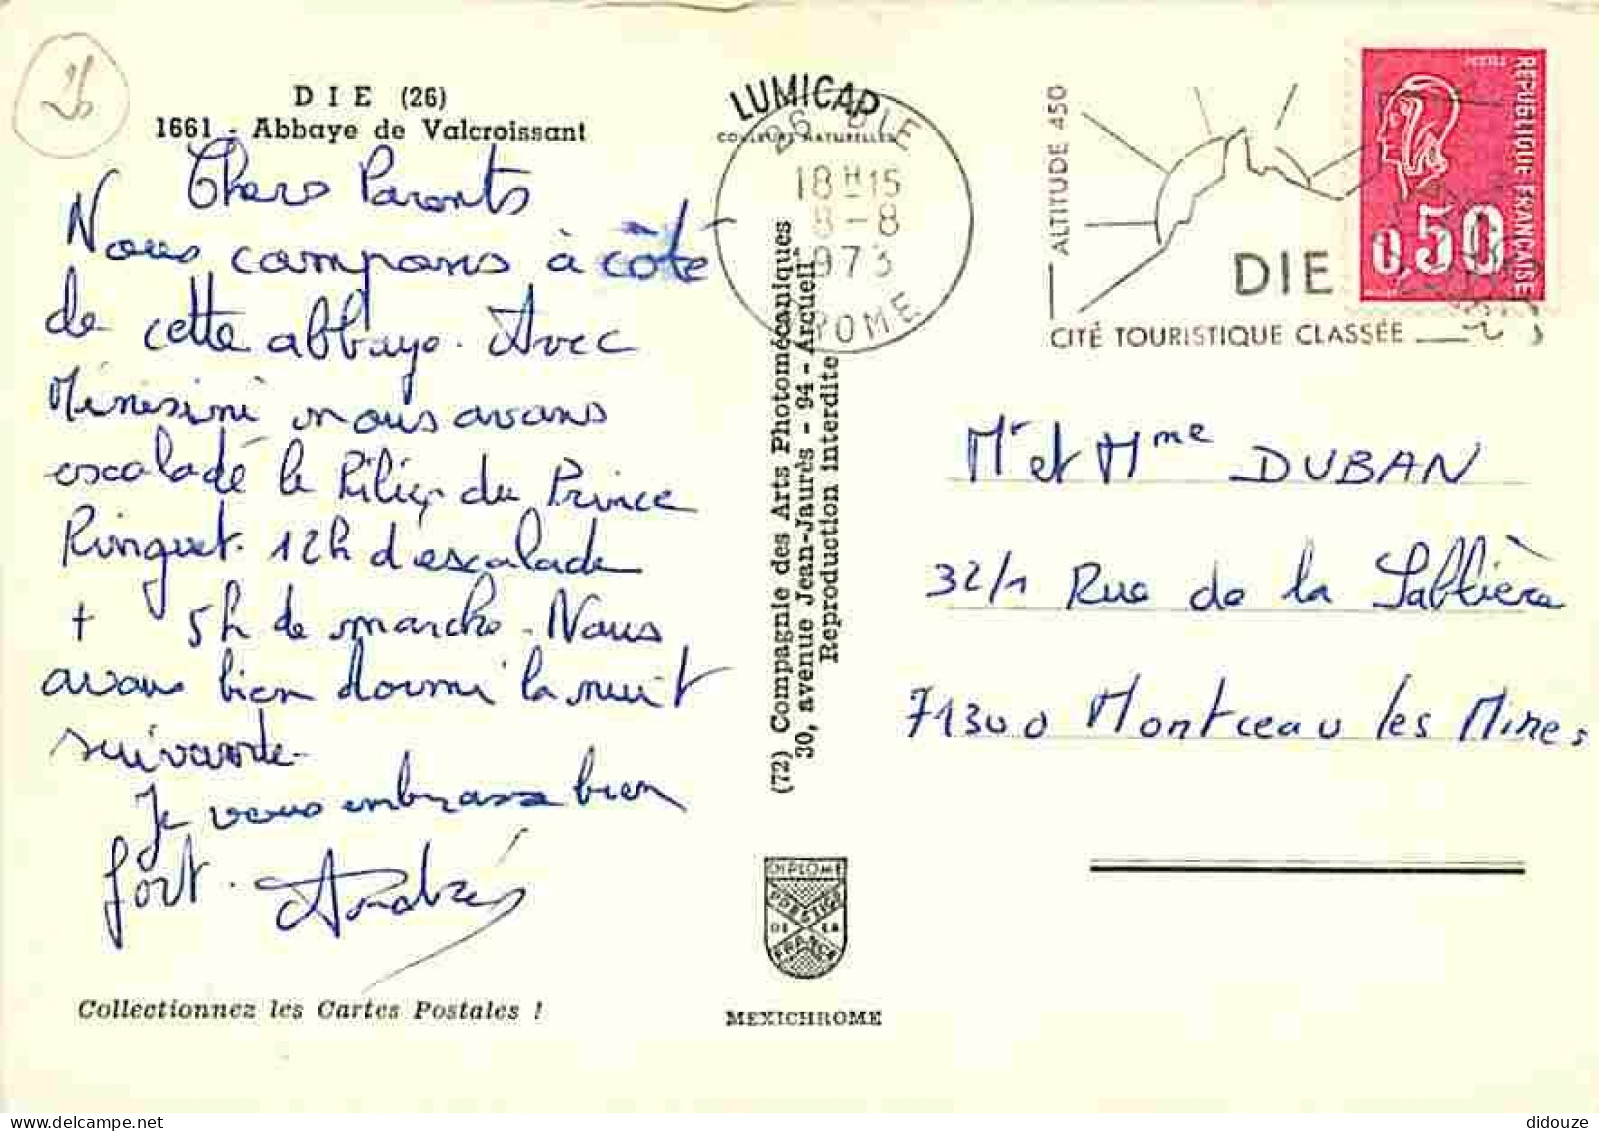 26
DIE (26)
1661 - Abbaye de Valcroissant
Chers Parents
Nous campons à côté
de cette abbaye. Avec
nous avons
escaladé le Pilier du Prince
Ringuet. 12h d'escalade
+ 5h de marche. Nous
avons bien dormi la nuit
suivante.
Je vous embrasse bien
fort.
Collectionnez les Cartes Postales !
LUMICAP
COULEURS NATURELLES
26 DIE
18H15
8-8
1973
DROME
(72) Compagnie des Arts Photomécaniques
30, avenue Jean-Jaurès - 94 - Arcueil
Reproduction interdite
DIPLOME
PRESTIGE
DE LA
FRANCE
MEXICHROME
ALTITUDE 450
DIE
CITÉ TOURISTIQUE CLASSÉE
REPUBLIQUE FRANÇAISE
0,50
Mr et Mme DUBAN
32/1 Rue de la Sablière
71300 Montceau les Mines
didouze